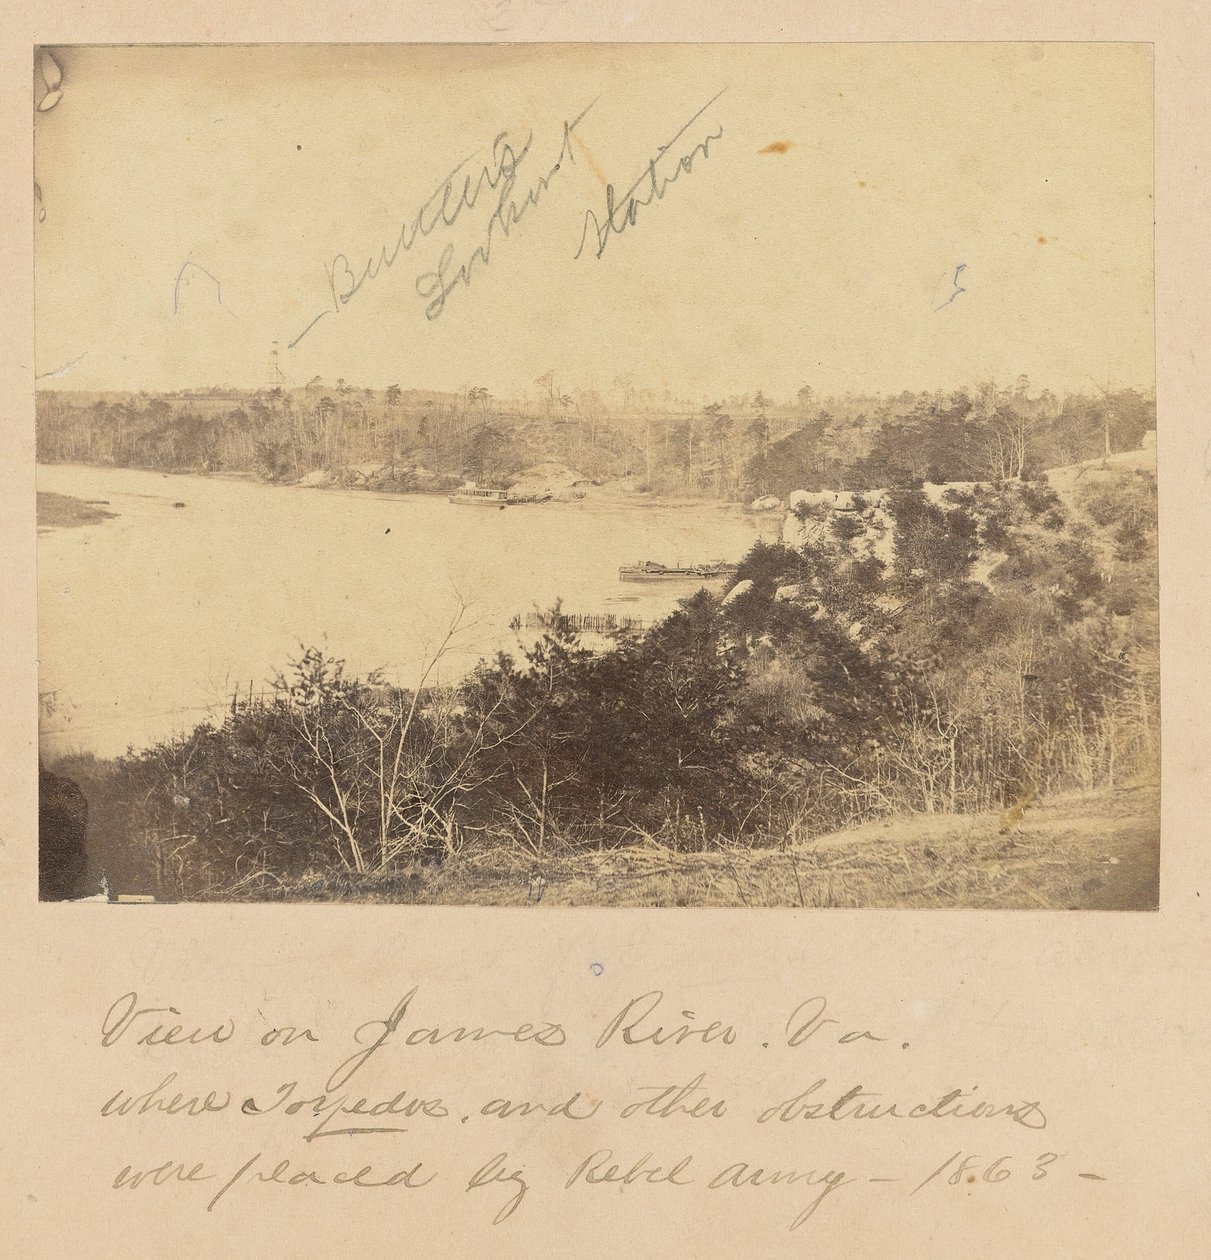 Butlers
Lookout
Station
View on James River. Va.
where Torpedos. and other obstructions
were placed by Rebel Army - 1863 -